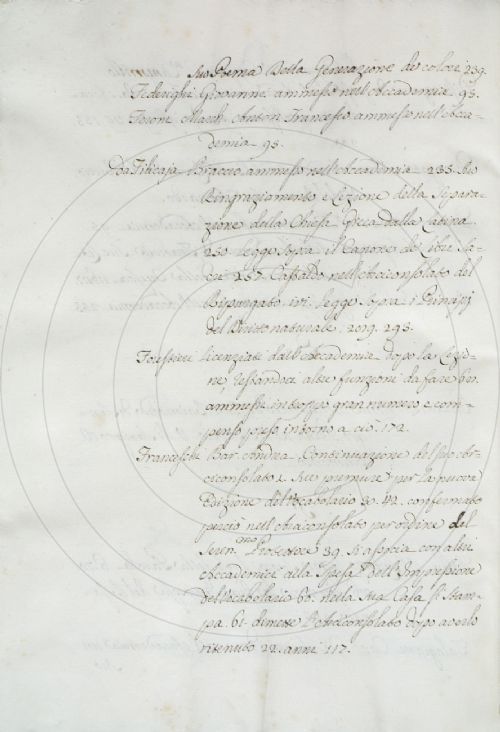 suo Poema della Generazione de colori 239.
Federighi Giovanni ammesso nell'Accademia 95.
Feroni March. Francesco ammesso nell'Acca-
demia 95.
Da Filicaja Braccio ammesso nell'Accademia 235. Suo
Ringraziamento e Lezione della Separa-
zione della Chiesa Greca dalla Latina
250 legge sopra il Canone de Libri Sa-
cri 257. Castaldo nell'Arciconsolato del
Ripurgato. ivi. legge sopra i Principj
del Diritto naturale. 293.
Forestieri licenziati dall'Accademia dopo la Lezio-
ne, restandoci altre funzioni da fare 60.
ammessi in troppo gran numero e com-
penso preso intorno a ciò. 172.
Franceschi Bar. Andrea. Continuazione del suo Ar-
ciconsolato e sue premure per la nuova
Edizione del Vocabolario 3. 42. confermato
perciò nell'Arciconsolato per ordine del
Seren.mo Protettore 39. Si associa con altri
Accademici alla spesa dell'Impressione
del Vocabolario 60. nella sua Casa si stam-
pa. 61. dimette l'Arciconsolato dopo averlo
ritenuto 22. anni 117.